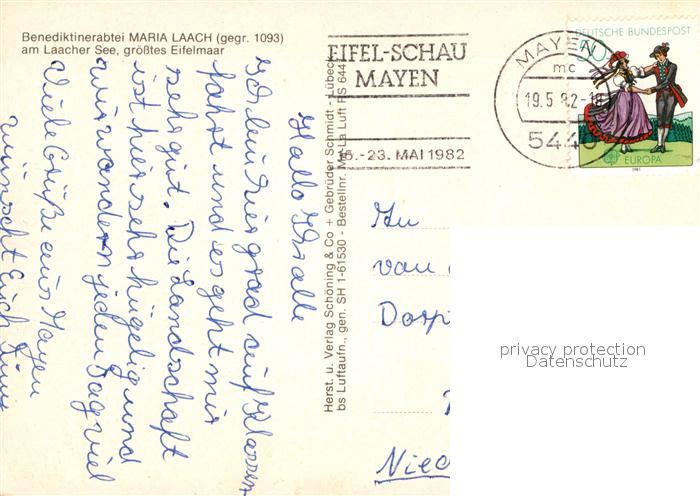 Benediktinerabtei MARIA LAACH (gegr. 1093)
am Laacher See, größtes Eifelmaar
EIFEL-SCHAU
MAYEN
15.-23. MAI 1982
MAYEN
mc
19.5.82-18
5440
DEUTSCHE BUNDESPOST
50
EUROPA
1981
Hallo Ihr alle
Ich bin hier grad auf Klassen-
fahrt und es geht mir
sehr gut. Die Landschaft
ist hier sehr hügelig und
wir wandern jeden Tag viel
Viele Grüße aus Mayen
wünscht Euch
Herst. u. Verlag Schöning & Co + Gebrüder Schmidt - Lübeck
bs Luftaufn., gen. SH 1-61530 - Bestellnr. Ma-La Luft RS 644
An
van
Dorp
Nied
privacy protection
Datenschutz